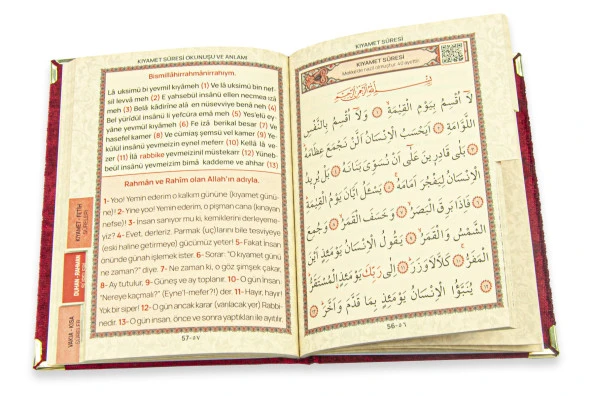 KIYAMET SÛRESİ OKUNUŞU VE ANLAMI
Bismillâhirrahmânirrahıym.
Lâ uksimü bi yevmil kıyâmeh (1) Ve lâ uksimü bin nef-
sil levvâmeh (2) E yahsebül insânü ellen necmea ızâ
meh (3) Belâ kâdirîne alâ en nüsevviye benâ neh (4)
Bel yürîdül insânü li yefcüra emâ meh (5) Yes'elü ey-
yâne yevmül kıyâmeh (6) Fe izâ berikal besar (7) Ve
hasefel kamer (8) Ve cümiaş şemsü vel kamer (9) Ye-
kûlül insânü yevmeizin eynel meferr (10) Kellâ lâ ve-
zer (11) İlâ rabbike yevmeizinil müstekarr (12) Yüneb-
beül insânü yevmeizim bimâ kaddeme ve ahhar (13)
Rahmân ve Rahîm olan Allah'ın adıyla.
1- Yoo! Yemin ederim o kalkım gününe (kıyamet günü-
ne)! 2- Yine yoo! Yemin ederim, o pişman cana (kınayan
nefse)! 3- İnsan sanıyor mu ki, kemiklerini derleyeme-
yiz? 4- Evet, derleriz. Parmak (uç)larını bile tesviyeye
(eski haline getirmeye) gücümüz yeter! 5- Fakat İnsan
önünde günah işlemek ister. 6- Sorar: "O kıyamet günü
ne zaman?" diye. 7- Ne zaman ki, o göz şimşek çakar,
8- Ay tutulur. 9- Güneş ve ay toplanır. 10- O gün İnsan:
"Nereye kaçmalı?" (Eyne'l-mefer?!) der. 11- Hayır, hayır!
Yok bir siper! 12- O gün ancak karar (varılacak yer) Rabbi-
nedir. 13- O gün insan, önce ve sonra yaptıkları ile ayıtılır.
57-٥٧
KIYAMET - FETİH
SÛRELERİ
DUHAN - RAHMAN
VAKIA - KISA
SÛRELER
KIYAMET SÛRESİ
KIYAMET SÛRESİ
Mekke'de nazil olmuştur. 40 ayettir.
بِسْمِ اللّٰهِ الرَّحْمٰنِ الرَّحٖيمِ
لَا اُقْسِمُ بِيَوْمِ الْقِيٰمَةِ ﴿١﴾ وَلَا اُقْسِمُ بِالنَّفْسِ
اللَّوَّامَةِ ﴿٢﴾ اَيَحْسَبُ الْاِنْسَانُ اَلَّنْ نَجْمَعَ عِظَامَهُ
﴿٣﴾ بَلٰى قَادِرٖينَ عَلٰٓى اَنْ نُسَوِّيَ بَنَانَهُ ﴿٤﴾ بَلْ يُرٖيدُ
الْاِنْسَانُ لِيَفْجُرَ اَمَامَهُ ﴿٥﴾ يَسْـَٔلُ اَيَّانَ يَوْمُ الْقِيٰمَةِ
﴿٦﴾ فَاِذَا بَرِقَ الْبَصَرُ ﴿٧﴾ وَخَسَفَ الْقَمَرُ ﴿٨﴾ وَجُمِعَ
الشَّمْسُ وَالْقَمَرُ ﴿٩﴾ يَقُولُ الْاِنْسَانُ يَوْمَئِذٍ اَيْنَ
الْمَفَرُّ ﴿١٠﴾ كَلَّا لَا وَزَرَ ﴿١١﴾ اِلٰى رَبِّكَ يَوْمَئِذٍ الْمُسْتَقَرُّ
﴿١٢﴾ يُنَبَّؤُا الْاِنْسَانُ يَوْمَئِذٍ بِمَا قَدَّمَ وَاَخَّرَ ﴿١٣﴾
56-٥٦